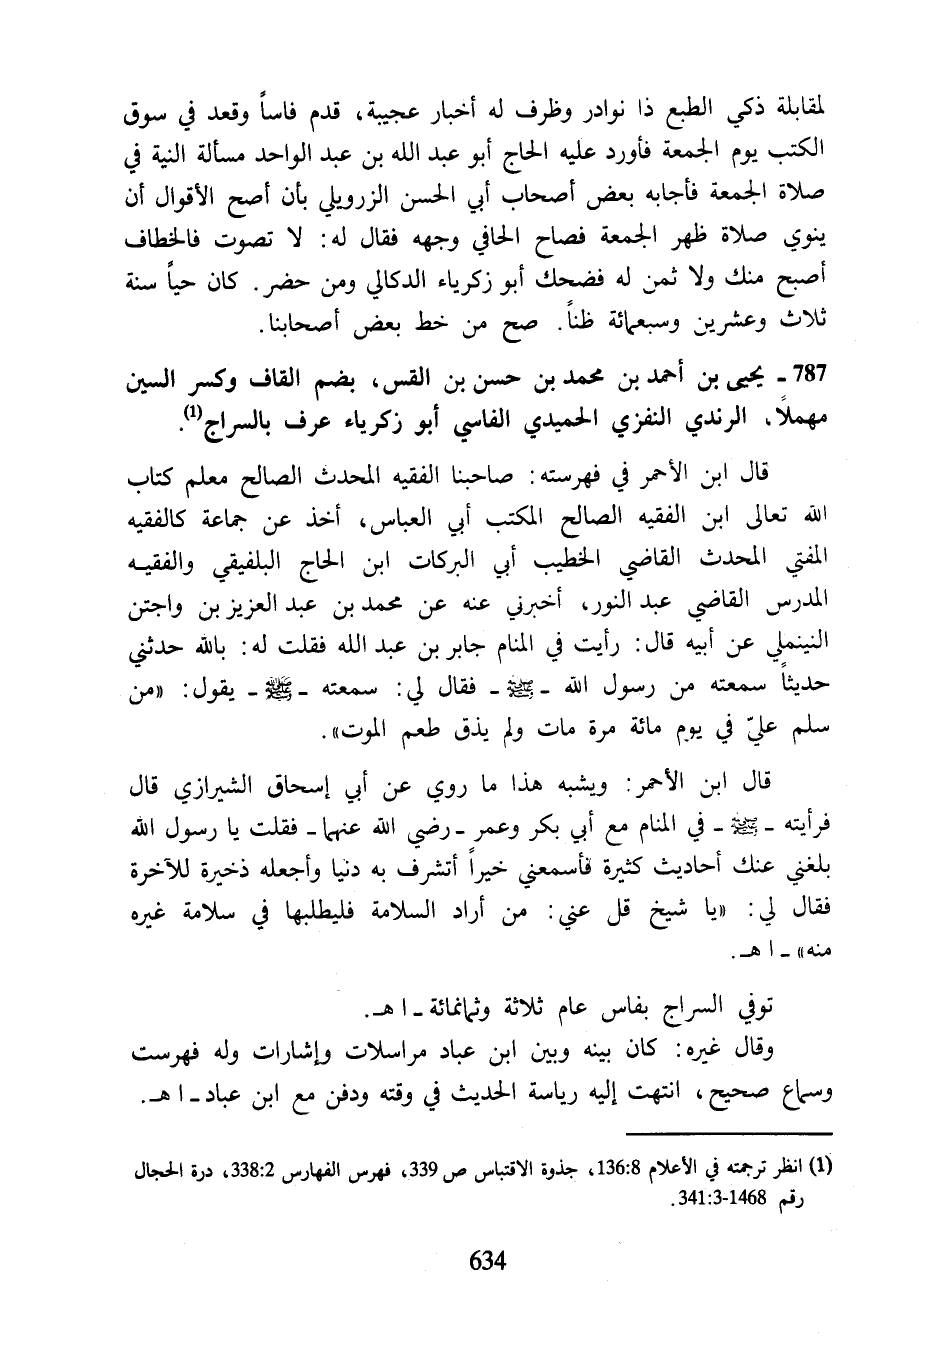 لمقابلة ذكي الطبع ذا نوادر وظرف له أخبار عجيبة، قدم فاساً وقعد في سوق
الكتب يوم الجمعة فأورد عليه الحاج أبو عبد الله بن عبد الواحد مسألة النية في
صلاة الجمعة فأجابه بعض أصحاب أبي الحسن الزرويلي بأن أصح الأقوال أن
ينوي صلاة ظهر الجمعة فصاح الحافي وجهه فقال له: لا تصوت فالخطاف
أصبح منك ولا ثمن له فضحك أبو زكرياء الدكالي ومن حضر. كان حياً سنة
ثلاث وعشرين وسبعمائة ظناً. صح من خط بعض أصحابنا.
787 ـ يحيى بن أحمد بن محمد بن حسن بن القس، بضم القاف وكسر السين
مهملاً، الرندي النفزي الحميدي الفاسي أبو زكرياء عرف بالسراج(1).
قال ابن الأحمر في فهرسته: صاحبنا الفقيه المحدث الصالح معلم كتاب
الله تعالى ابن الفقيه الصالح المكتب أبي العباس، أخذ عن جماعة كالفقيه
المفتي المحدث القاضي الخطيب أبي البركات ابن الحاج البلفيقي والفقيه
المدرس القاضي عبد النور، أخبرني عنه عن محمد بن عبد العزيز بن واجتن
التينملي عن أبيه قال: رأيت في المنام جابر بن عبد الله فقلت له: بالله حدثني
حديثاً سمعته من رسول الله ـ ﷺ ـ فقال لي: سمعته ـ ﷺ ـ يقول: «من
سلم عليّ في يوم مائة مرة مات ولم يذق طعم الموت».
قال ابن الأحمر: ويشبه هذا ما روي عن أبي إسحاق الشيرازي قال
فرأيته ـ ﷺ ـ في المنام مع أبي بكر وعمر ـ رضي الله عنهما ـ فقلت يا رسول الله
بلغني عنك أحاديث كثيرة فأسمعني خيراً أتشرف به دنيا وأجعله ذخيرة للآخرة
فقال لي: «يا شيخ قل عني: من أراد السلامة فليطلبها في سلامة غيره
منه» ـ ا هـ.
توفي السراج بفاس عام ثلاثة وثمانمائة ـ ا هـ.
وقال غيره: كان بينه وبين ابن عباد مراسلات وإشارات وله فهرست
وسماع صحيح، انتهت إليه رياسة الحديث في وقته ودفن مع ابن عباد ـ ا هـ.
(1) انظر ترجمته في الأعلام 136:8، جذوة الاقتباس ص 339، فهرس الفهارس 338:2، درة الحجال
رقم 1468-341:3.
634